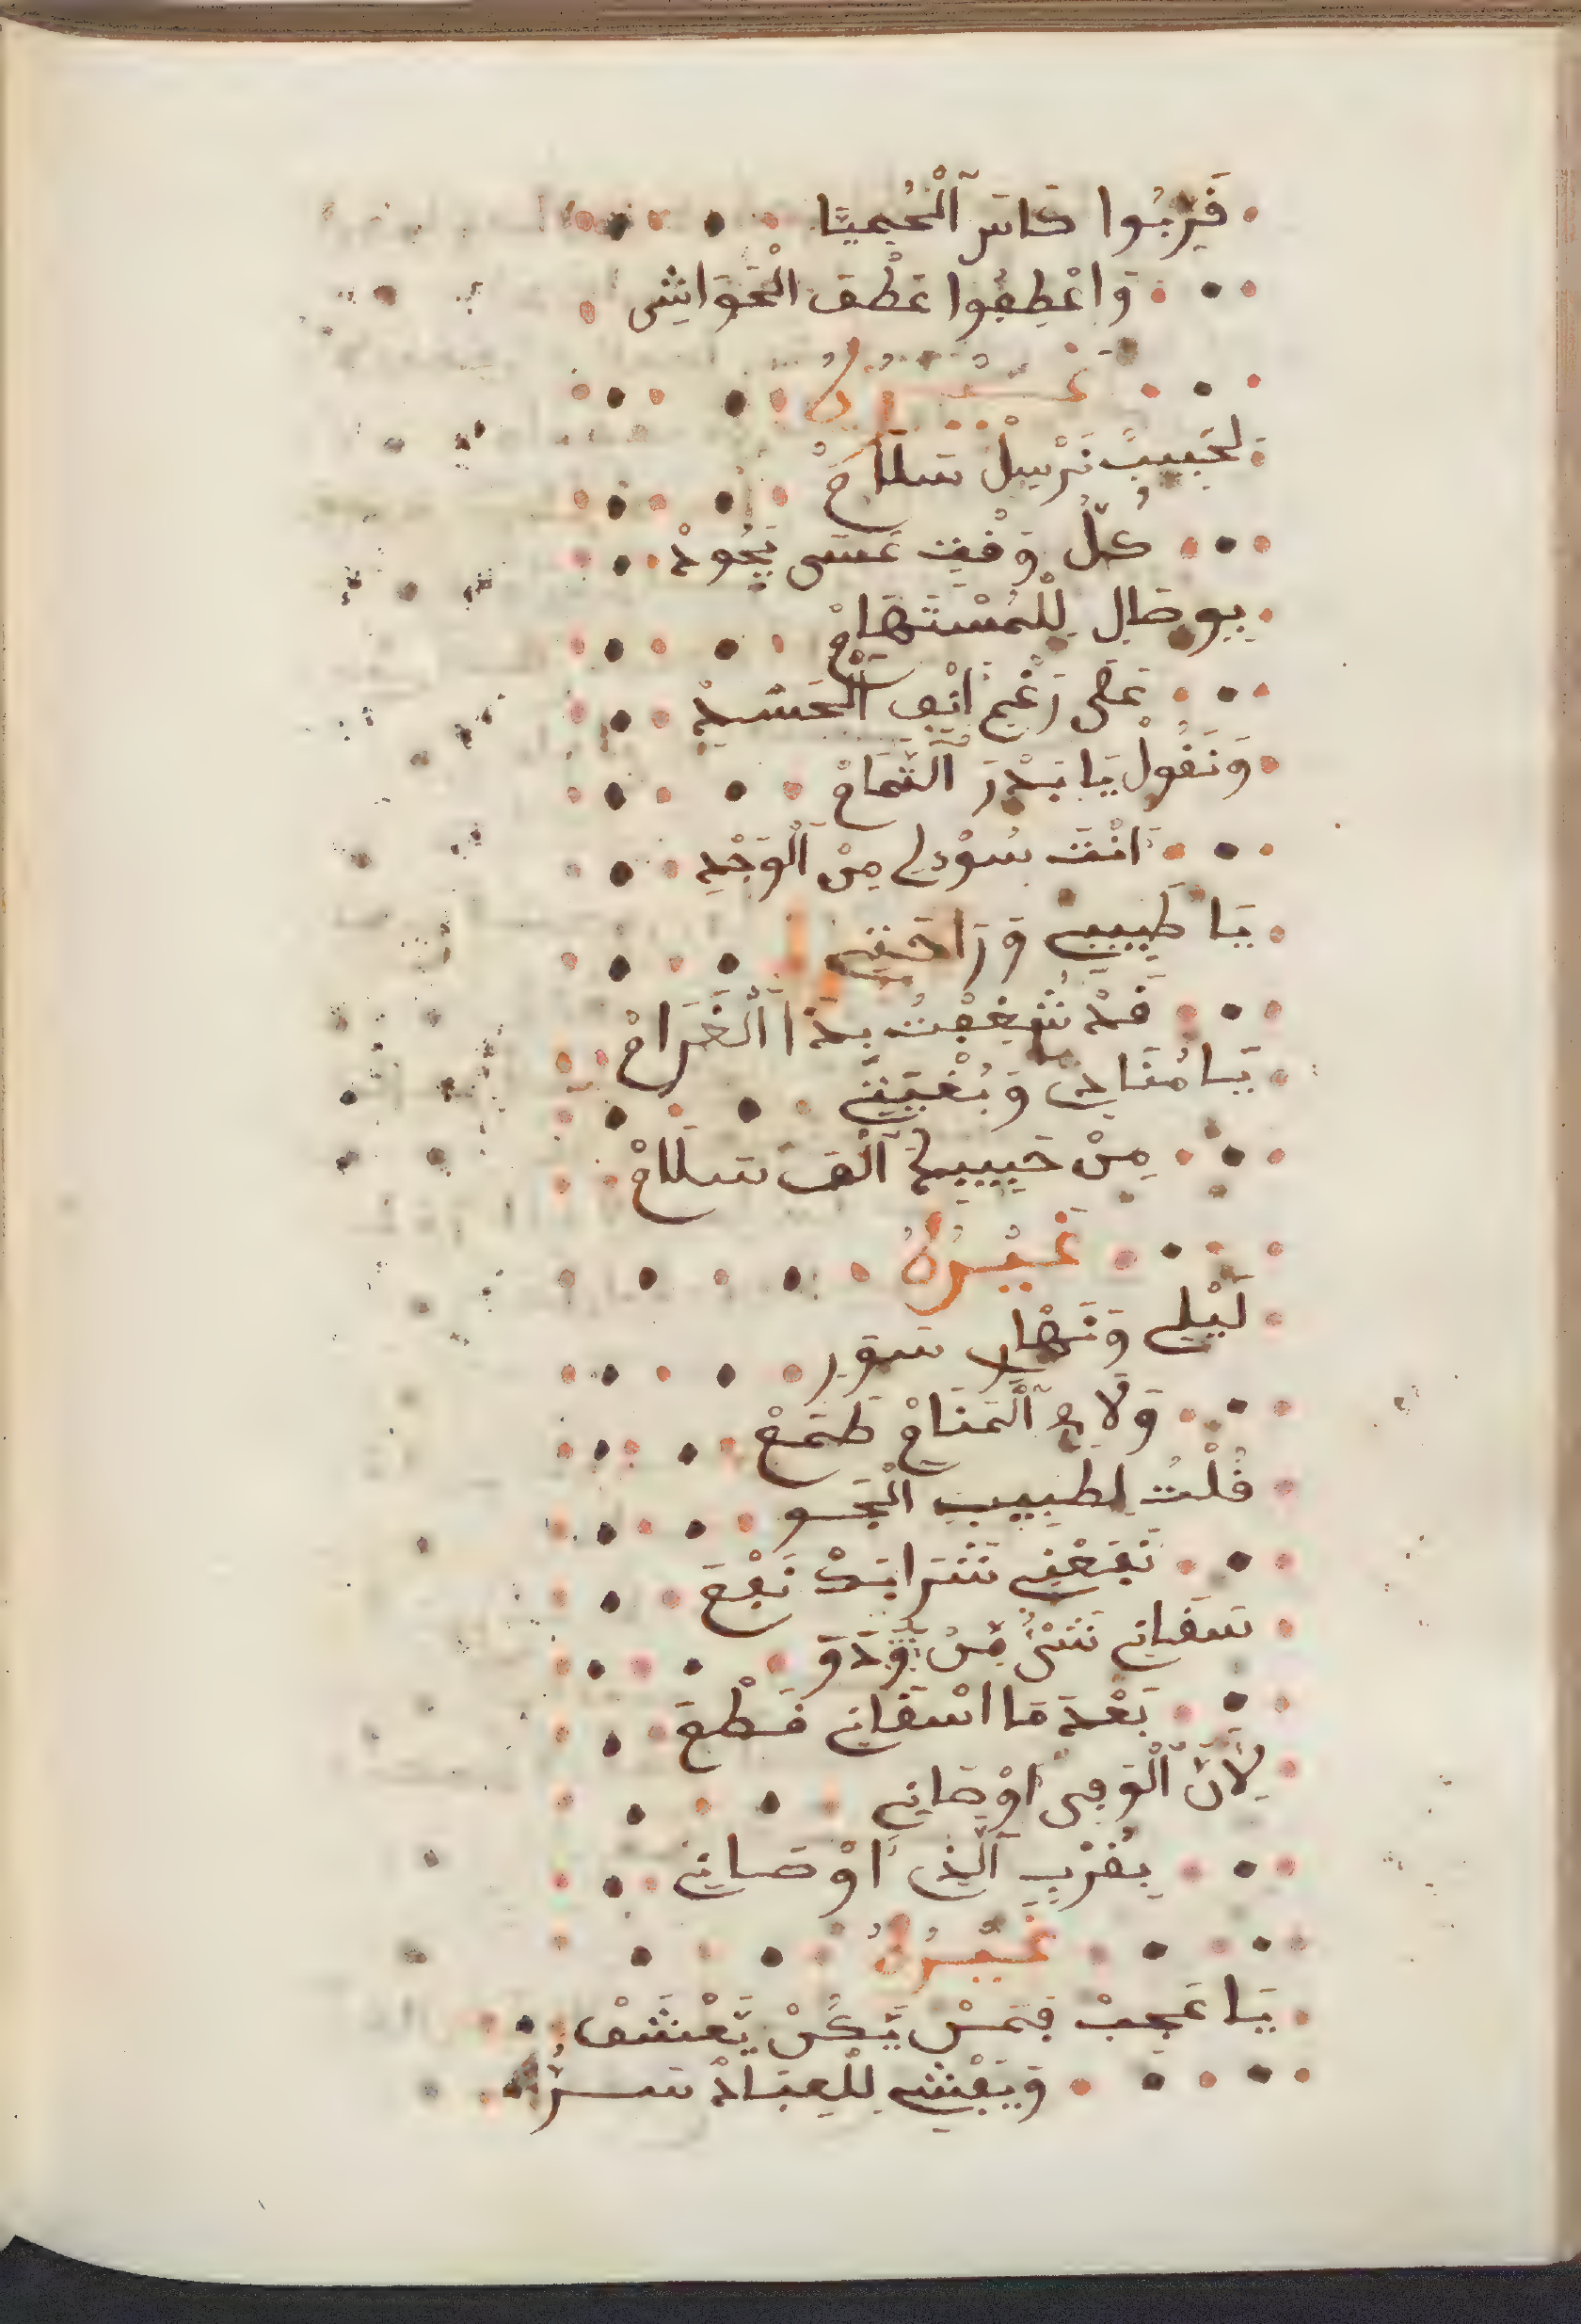 قَرِّبُوا كَاسَ ٱلْحُمَيَّا
وَاعْطِفُوا عَطْفَ الْحَوَاشِي
غَيْرُهُ
لِحَبِيبٍ نَرْسِلْ سَلَامْ
كُلَّ وَقْتِ عَسَى يَجُودْ
بِوِصَالِ لِلْمُسْتَهَامْ
عَلَى رَغْمِ اَنْفِ ٱلْحَسُدِ
وَنَقُولْ يَا بَدْرَ ٱلتَّمَامْ
اَنْتَ سُؤْلِي مِنَ ٱلْوَجْدِ
يَا طَبِيبِي وَرَاحَتِي
قَدْ شُغِفْتُ بِذَا ٱلْغَرَامْ
يَا مُنَايَ وَبُغْيَتِي
مِنْ حَبِيبِي ٱلْفَ سَلَامْ
غَيْرُهُ
لَيْلِي وَنَهَارِ سَوَ
وَلَا فِي ٱلْمَنَامْ طَمَعْ
قُلْتُ لِطَبِيبِ الْجَو
نَفَعْنِي شَرَابَكْ نَفْعَ
سَقَانِي شَيْ مِنُ وَدَوَ
بَعْدَ مَا اسْقَانِي قَطْعَ
لِأَنَّ ٱلْوَ اوْصَانِي
بِقُرْبِ ٱلَّذِي اَوْصَانِي
غَيْرُهُ
يَا عَجَبْ فَمَنْ يَّكُنْ يَّعْشَقْ
وَيَفْشِي لِلْعِبَادْ سِرُّ